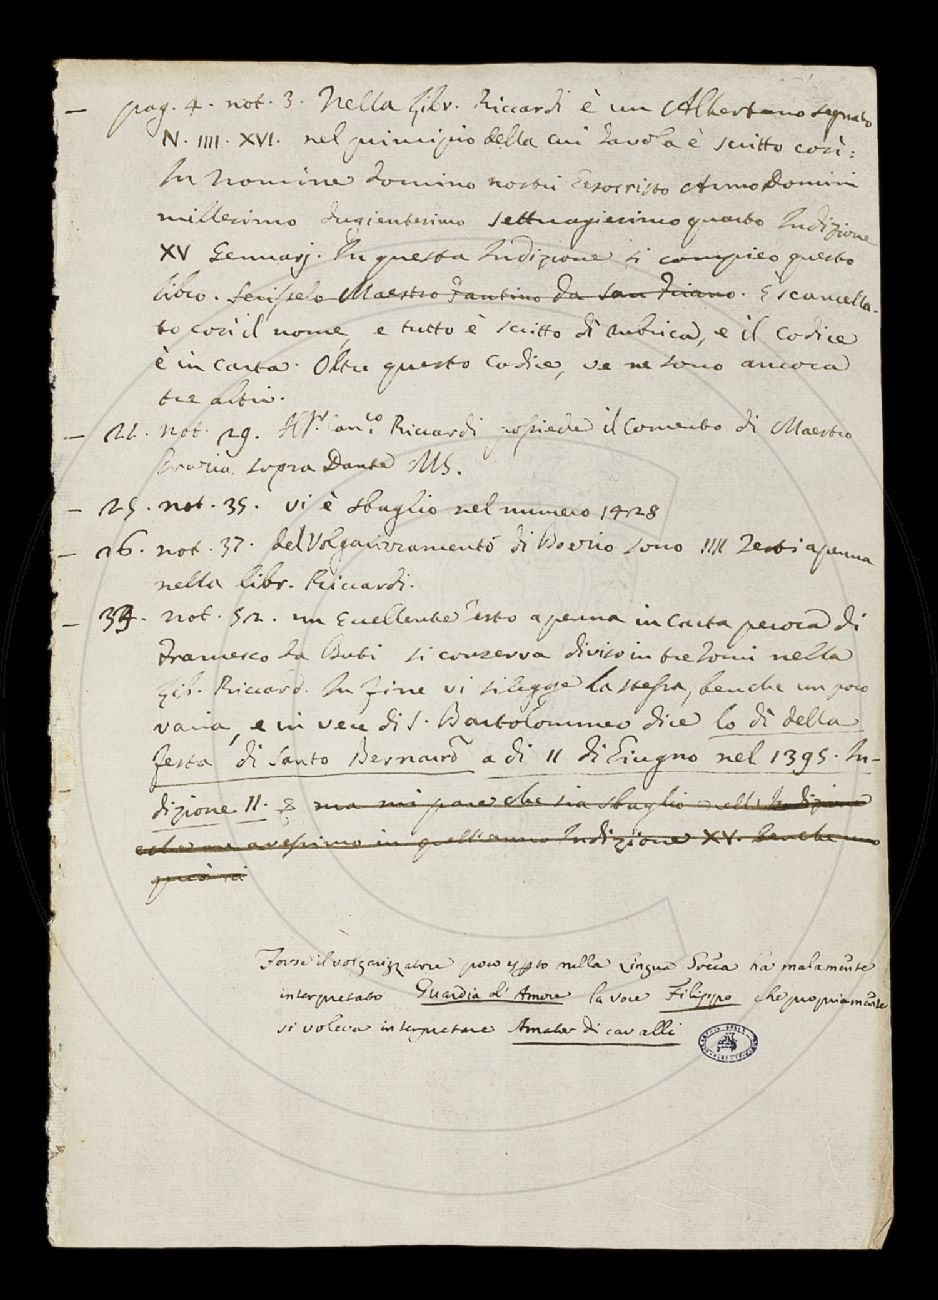 — pag. 4. not. 3. Nella Libr. Riccardi è un Albertano segnato
N. IIII. XVI. nel principio della cui tavola è scritto così:
In nomine domino nostri Gesocristo Anno Domini
millesimo dugientesimo settuagiesimo quarto Indizione
XV Gennarj. In questa Indizione si compieo questo
libro. Scrisselo Maestro Fantino da San Friano. È scancella-
to così il nome, e tutto è scritto di rubrica, e il codice
è in carta. Oltre questo Codice, ve ne sono ancora
tre altri.
— 22. not. 29. Riccardi possiede il Comento di Maestro
sopra Dante MS.
— 25. not. 35. vi è sbaglio nel numero 1428
— 26. not. 37. del Volgarizzamento di Boezio sono IIII Testi a penna
nella libr. Riccardi.
— 39. not. 52. un Eccellente testo a penna in Carta pecora di
Francesco da Buti si conserva diviso in tre tomi nella
Lib. Riccard. In fine vi si legge la stessa, benche un poco
varia, e in vece di S. Bartolommeo dice lo dì della
festa di Santo Bernardo a di 11 di Giugno nel 1395. In-
dizione II. ma mi pare che sia sbaglio nell' Indizione
in quell'anno Indizione XV. benche un

Forse il volgarizzatore poco esperto nella Lingua Greca ha malamente
interpretato Guardia d' Amore la voce Filippo che propriamente
si voleva interpretare Amator di cavalli